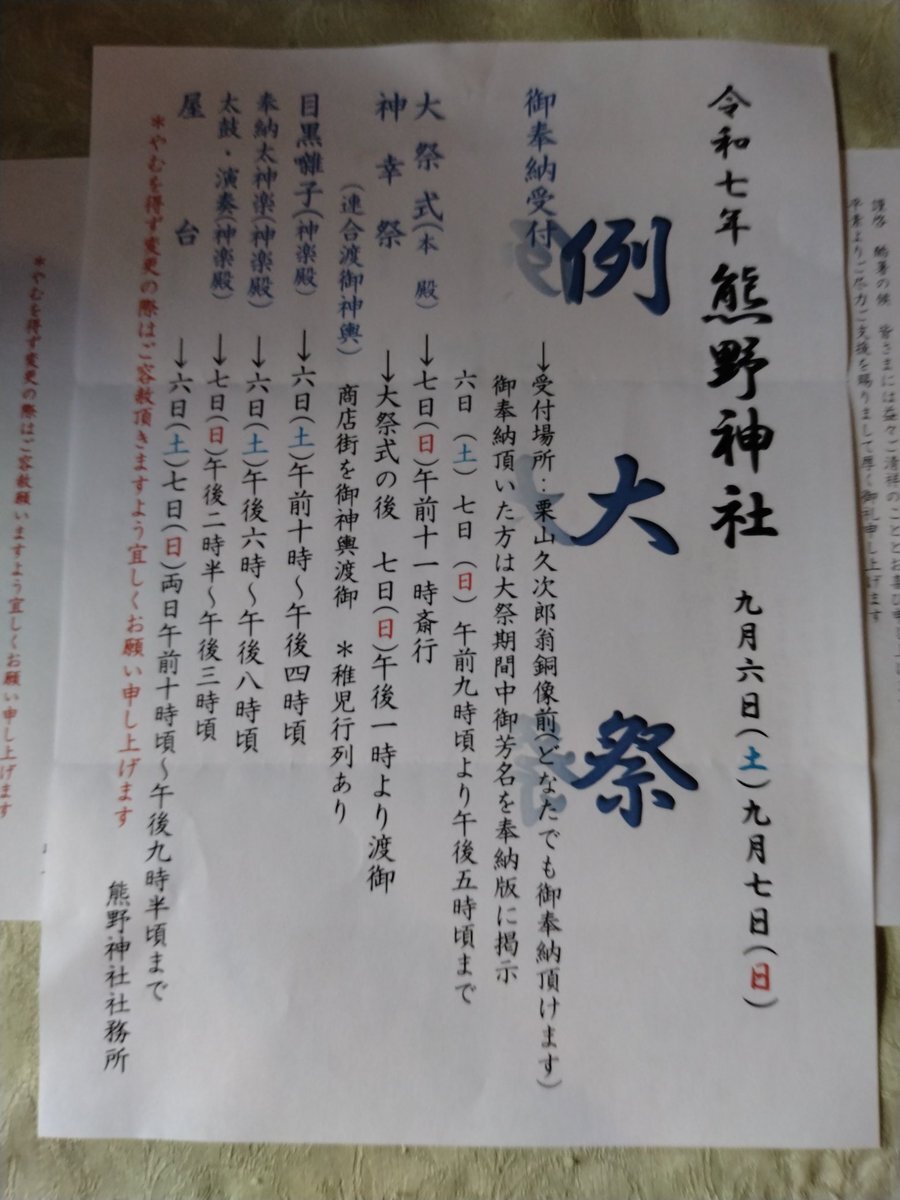 令和七年 熊野神社 九月六日(土)九月七日(日)
例大祭
御奉納受付 →受付場所:栗山久次郎翁銅像前(どなたでも御奉納頂けます)
御奉納頂いた方は大祭期間中御芳名を奉納版に掲示
六日(土)七日(日)午前九時頃より午後五時頃まで
大祭式(本殿) →七日(日)午前十一時斎行
神幸祭 →大祭式の後 七日(日)午後一時より渡御
(連合渡御神輿) 商店街を御神輿渡御 *稚児行列あり
目黒囃子(神楽殿) →六日(土)午前十時~午後四時頃
奉納太神楽(神楽殿) →六日(土)午後六時~午後八時頃
太鼓・演奏(神楽殿) →七日(日)午後二時半~午後三時頃
屋台 →六日(土)七日(日)両日午前十時頃~午後九時半頃まで
*やむを得ず変更の際はご容赦頂きますよう宜しくお願い申し上げます
熊野神社社務所
謹啓 酷暑の候 皆さまには益々ご清祥のこととお喜び申し
平素よりご尽力ご支援を賜りまして厚く御礼申し上げます
*やむを得ず変更の際はご容赦願いますよう宜しくお願い申し上げます